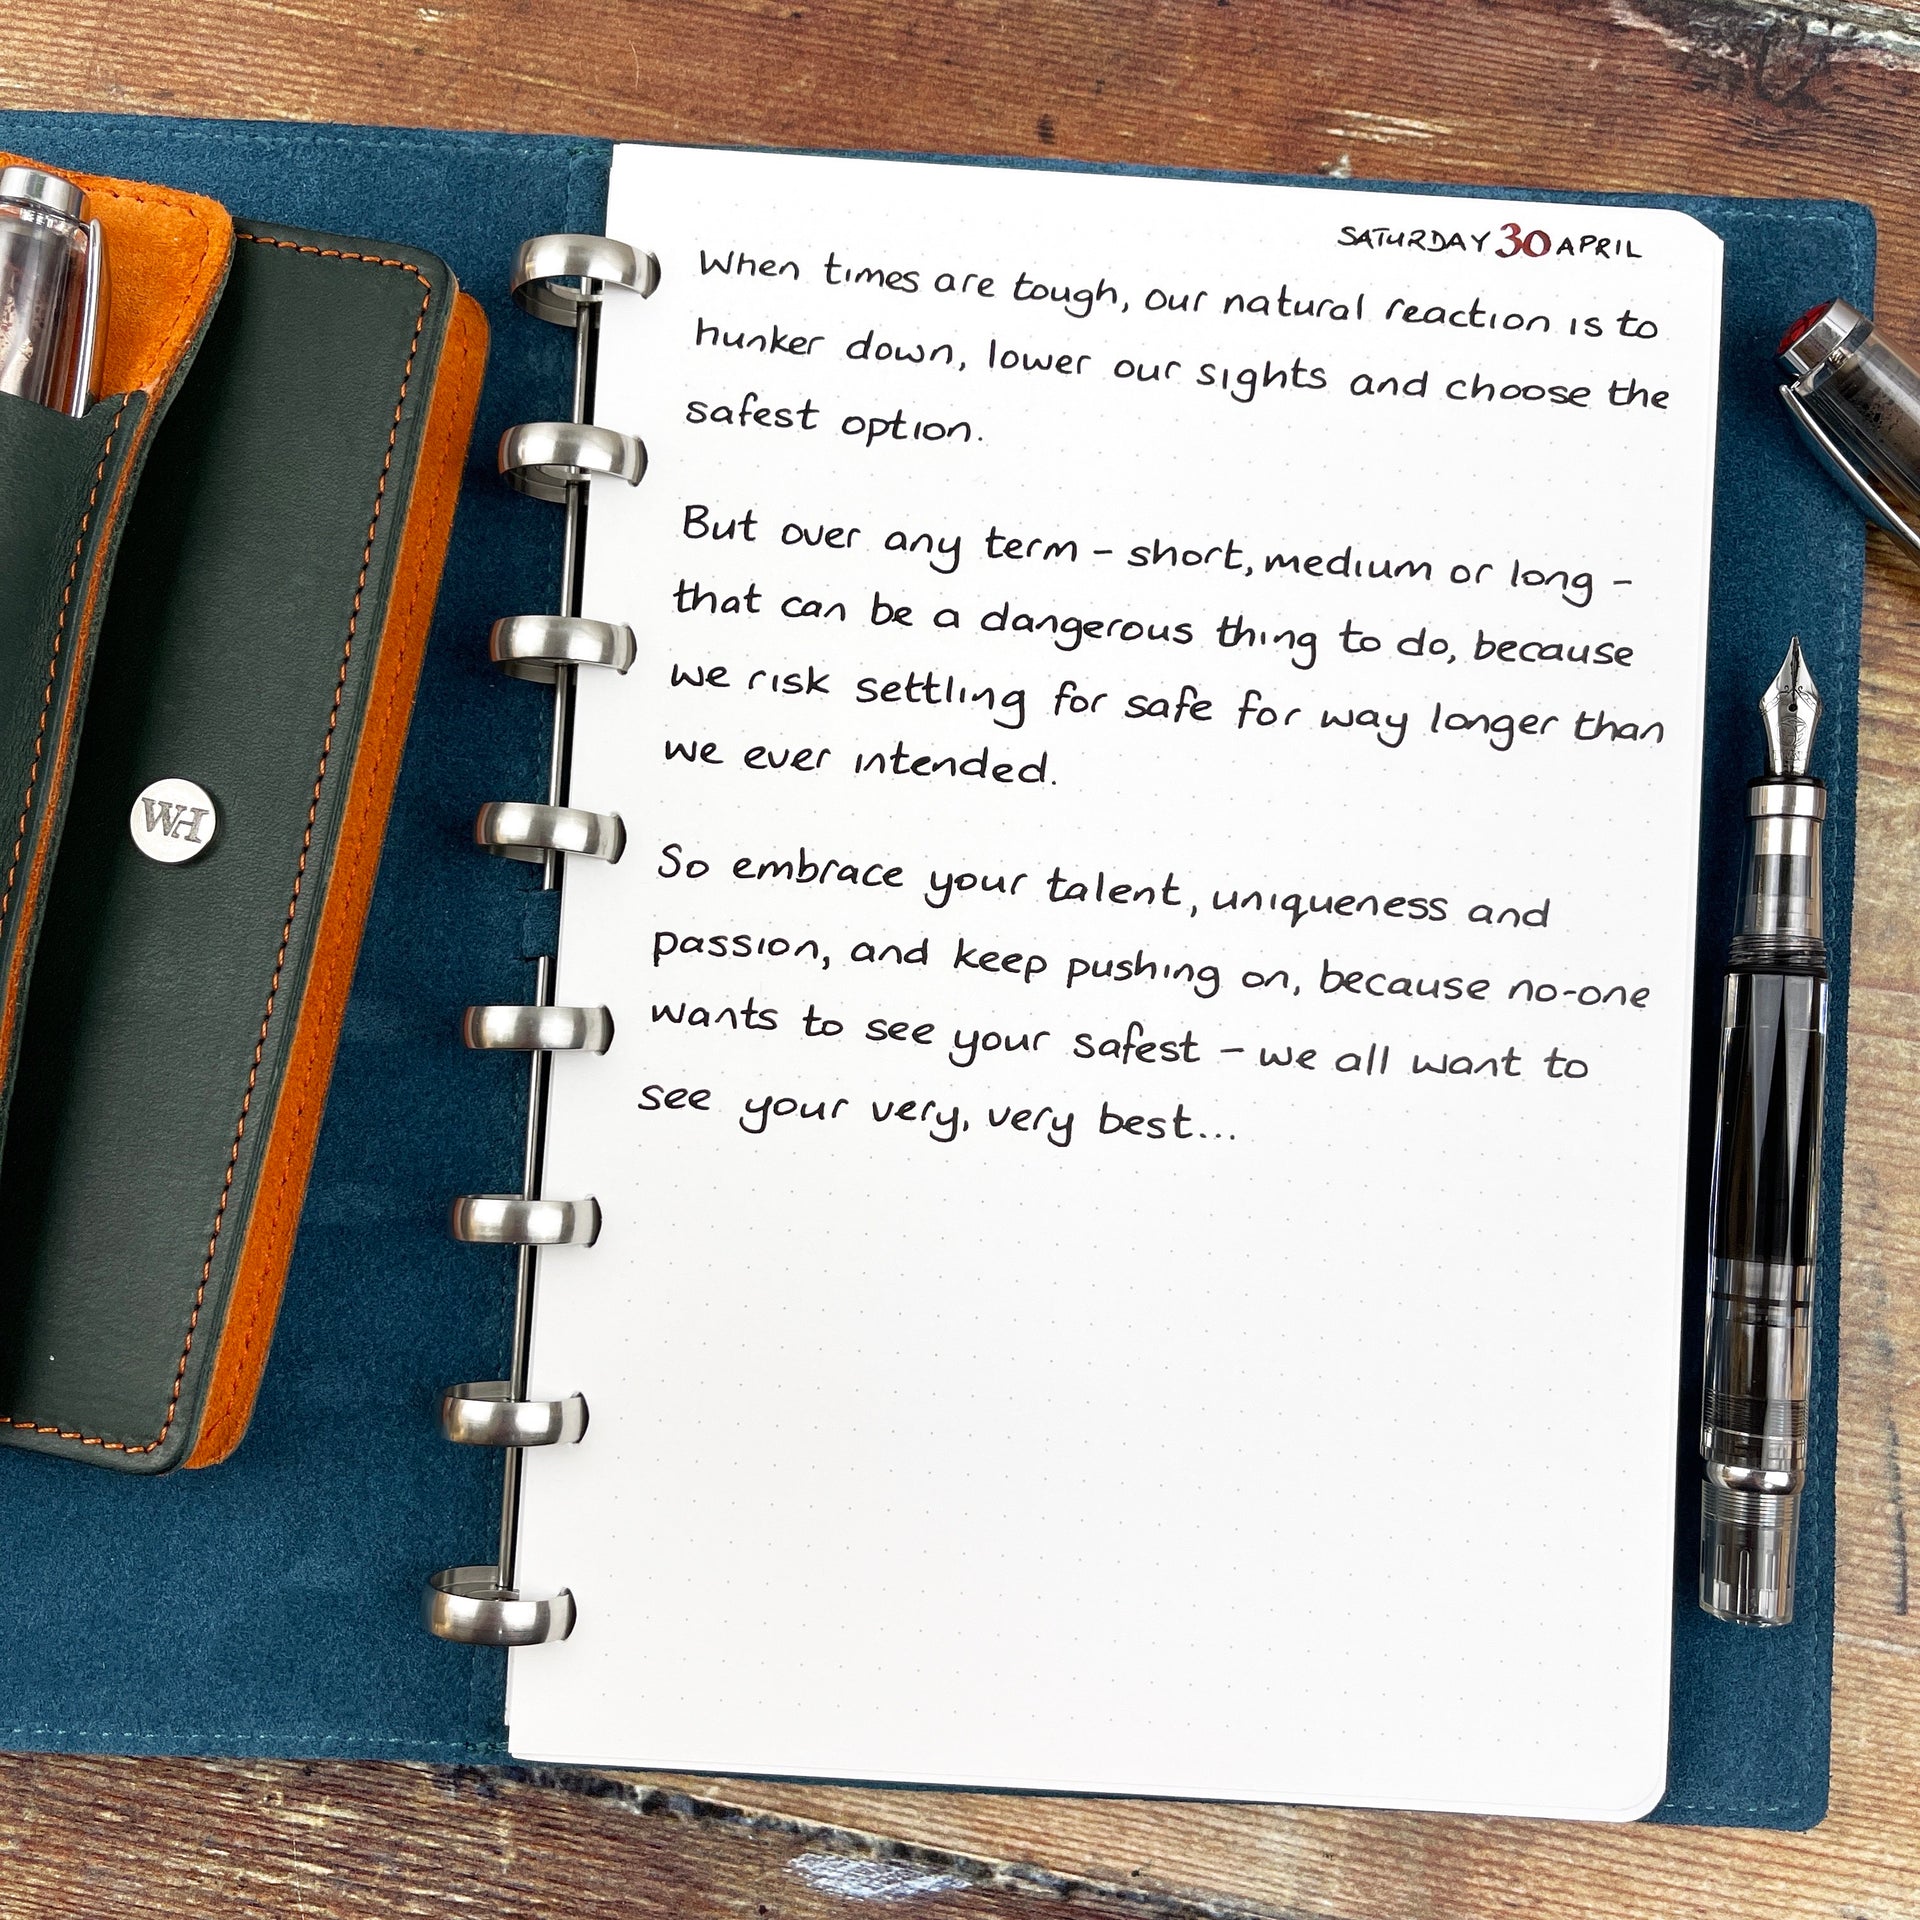 SATURDAY 30 APRIL
When times are tough, our natural reaction is to
hunker down, lower our sights and choose the
safest option.
But over any term – short, medium or long –
that can be a dangerous thing to do, because
we risk settling for safe for way longer than
we ever intended.
So embrace your talent, uniqueness and
passion, and keep pushing on, because no-one
wants to see your safest – we all want to
see your very, very best...
WH